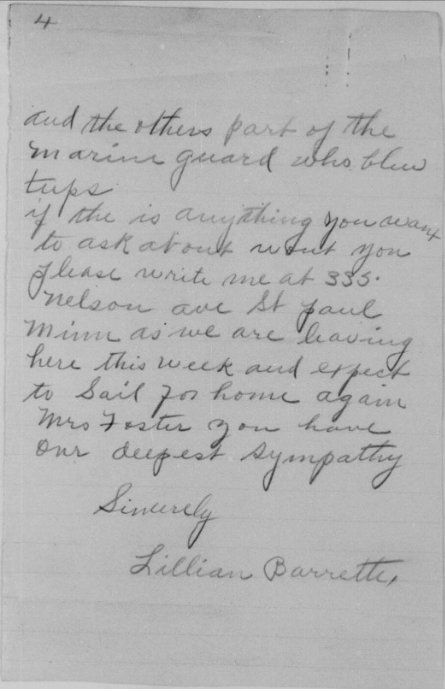 4
and the others part of the
marine guard who blew
tups
if the is anything you want
to ask about wont you
please write me at 335.
Nelson ave St Paul
Minn as we are leaving
here this week and expect
to Sail for home again
Mrs Foster you have
our deepest sympathy
Sincerely
Lillian Barrette,